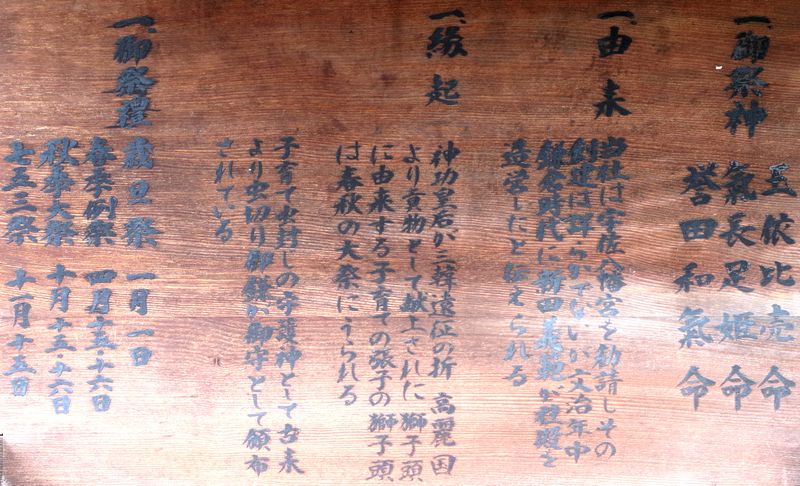 一、御祭神
玉依比売命
氣長足姫命
誉田和氣命
一、由来
当社は宇佐八幡宮を勧請しその
創建は詳らかでないが文治年中
鎌倉時代に新田義範が社殿を
造営したと伝えられる
一、縁起
神功皇后が三韓遠征の折 高麗国
より貢物として献上された獅子頭
に由来する子育ての張子の獅子頭
は春秋の大祭にうられる
子育て虫封じの守護神として古来
より虫切り御鎌が御守として頒布
されている
一、御祭禮
歳旦祭 一月一日
春季例祭 四月十五、十六日
秋季大祭 十月十五、十六日
七五三祭 十一月十五日